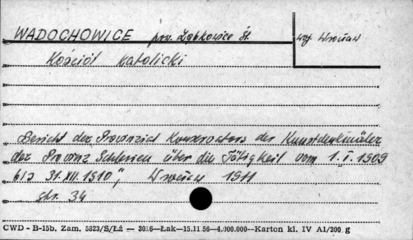 WADOCHOWICE pow. Ząbkowice Śl. woj. Wrocław
Kościół katolicki
„Bericht des Provinzial Konservators der Kunstdenkmäler
der Provinz Schlesien über die Tätigkeit vom 1.I.1909
bis 31.XII.1910", Wrocław 1911
str. 34
CWD - B-15b, Zam. 5822/S/Łż — 2016—Łak—15.11.56—4.000.000—Karton kl. IV A1/200 g